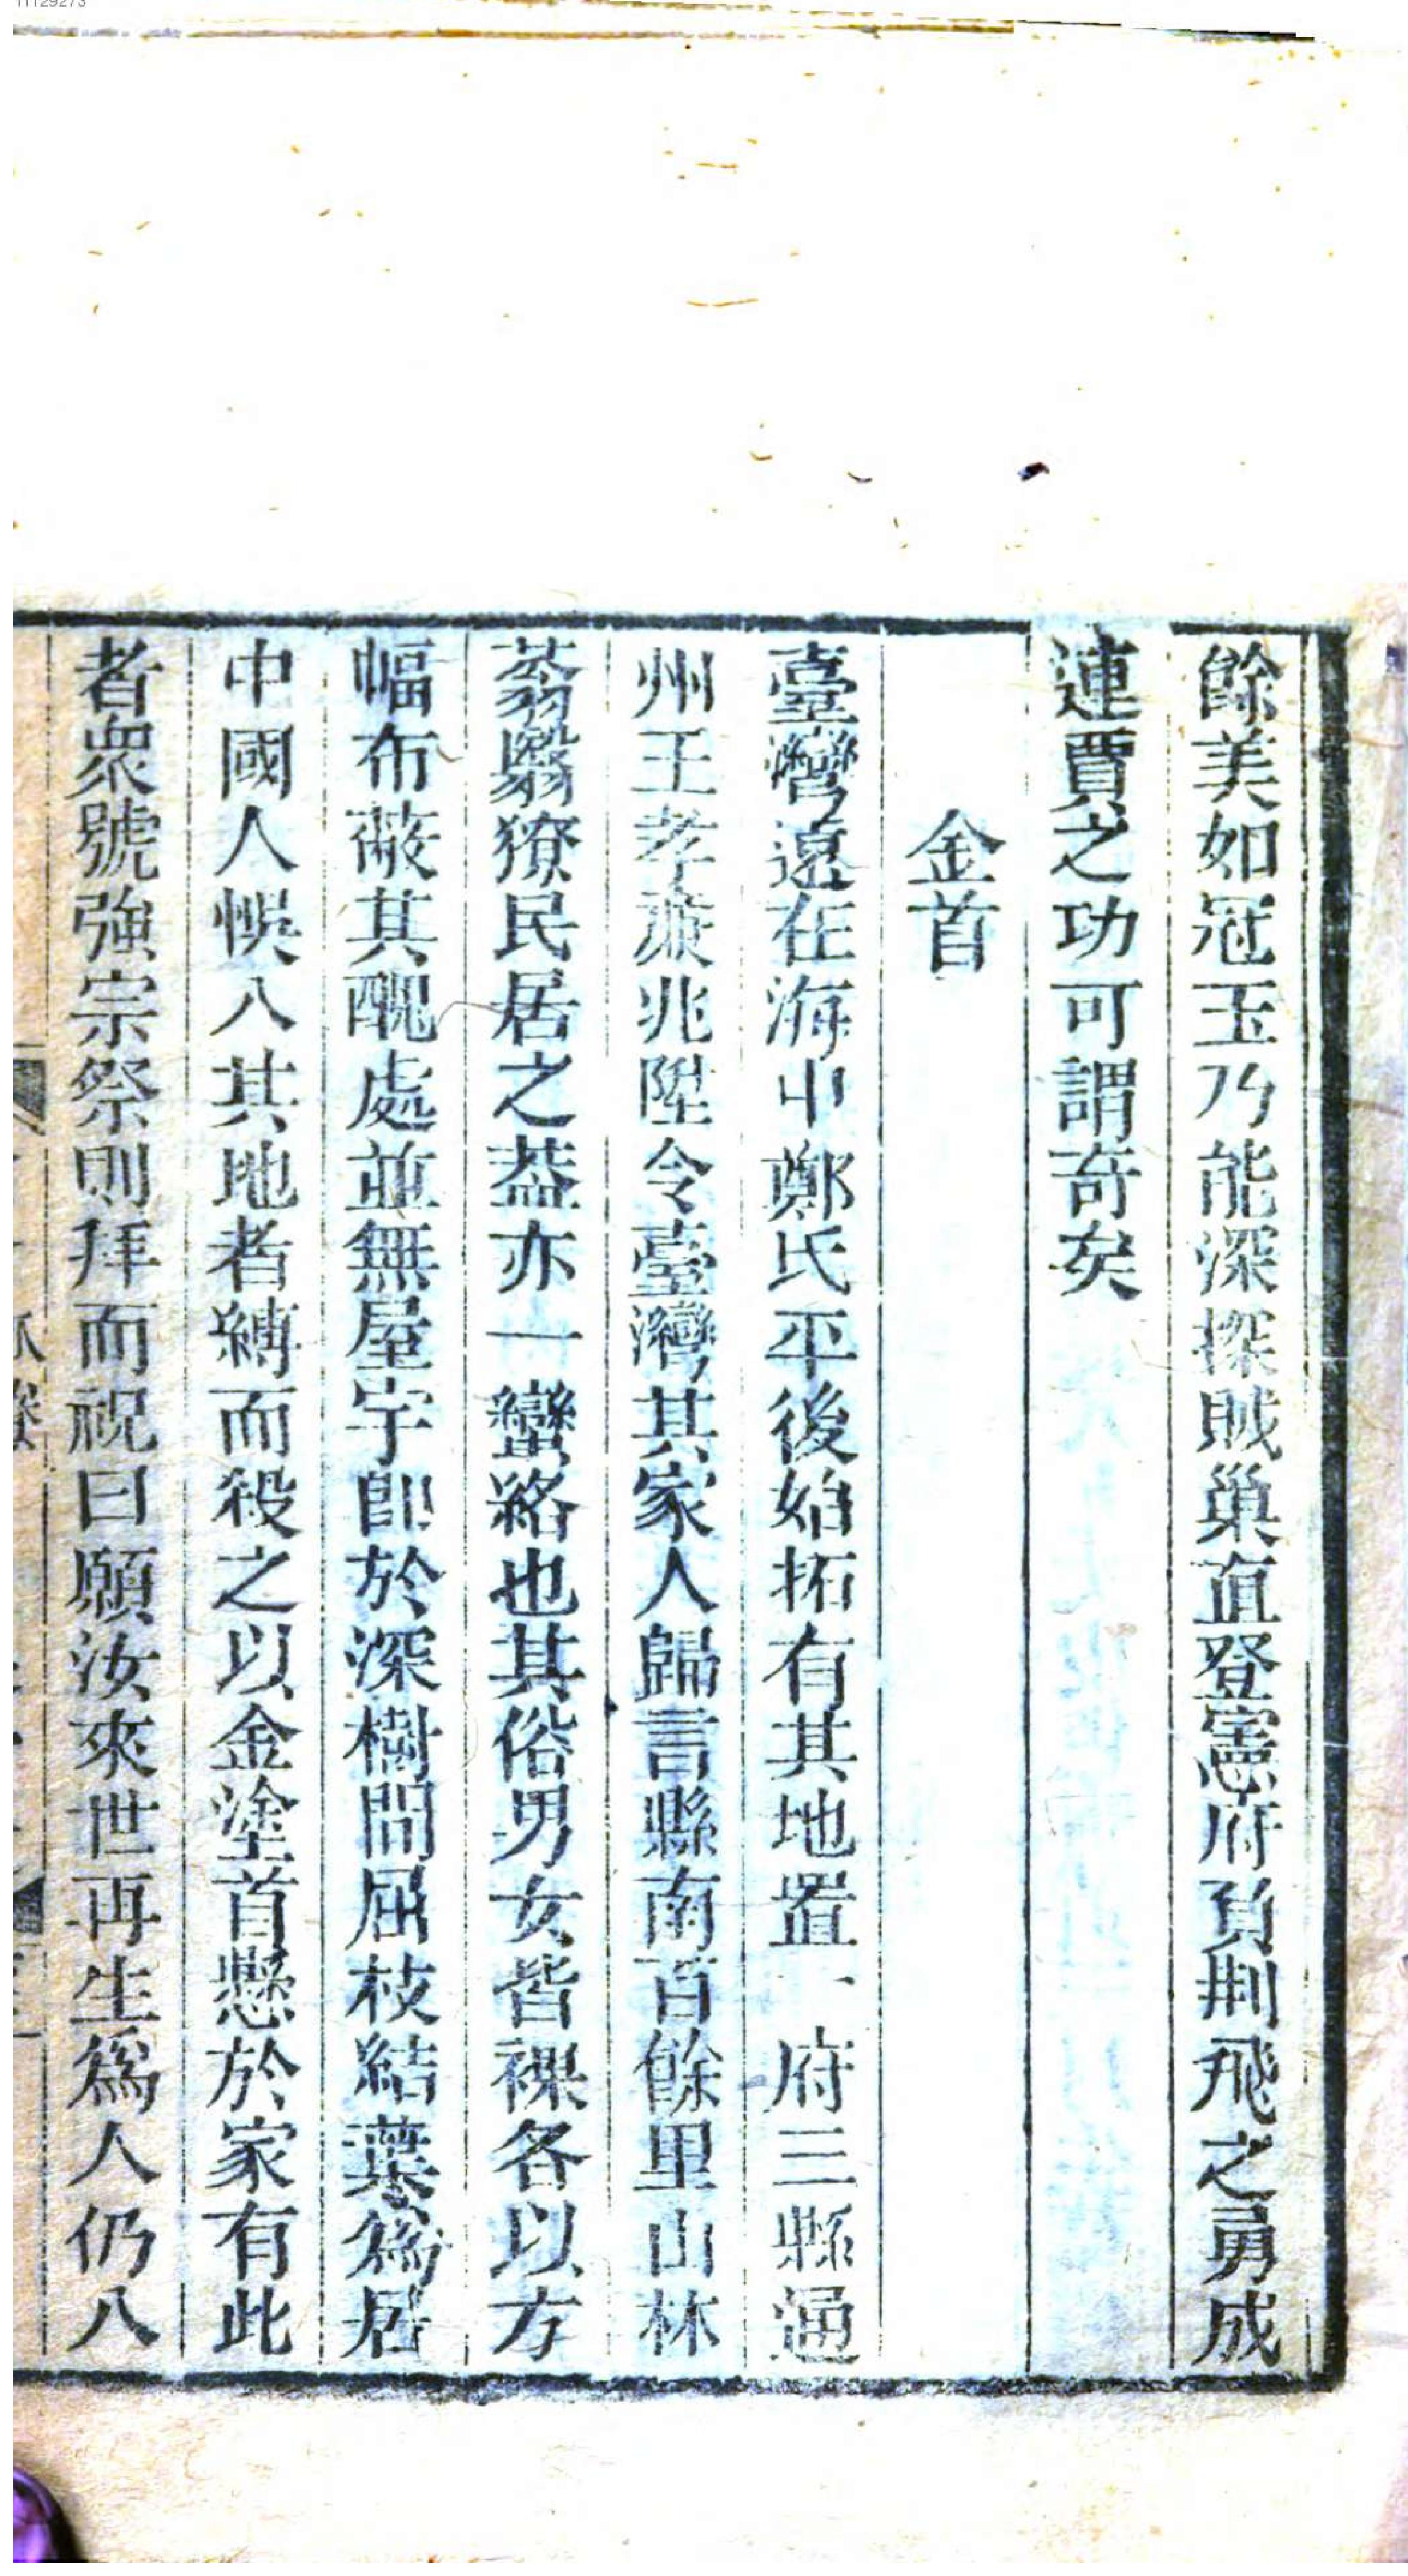 餘美如冠玉乃能深探賊巢直登憲府負荆飛之勇成
連賈之功可謂奇矣
金首
臺灣遠在海中鄭氏平後始拓有其地置一府三縣通
州王孝兆陞令臺灣其家人歸言縣南百餘里山林
蓊翳獠民居之葢亦一蠻絡也其俗男女皆裸各以方
幅布蔽其醜處並無屋宇卽於深樹間屈枝結葉爲居
中國人悞入其地者縛而殺之以金塗首懸於家有此
者衆號強宗祭則拜而祝曰願汝來世再生爲人仍入